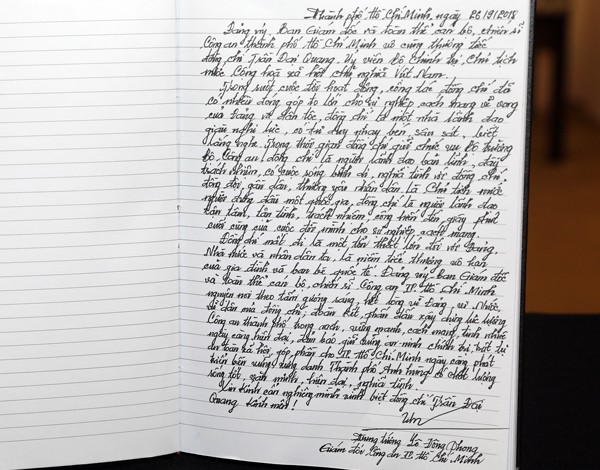 Thành phố Hồ Chí Minh, ngày 26/9/2018
Đảng ủy, Ban Giám đốc và toàn thể cán bộ, chiến sĩ
Công an thành phố Hồ Chí Minh vô cùng thương tiếc
đồng chí Trần Đại Quang, Ủy viên Bộ Chính trị, Chủ tịch
nước Cộng hoà xã hội chủ nghĩa Việt Nam.
Trong suốt cuộc đời hoạt động, công tác đồng chí đã
có nhiều đóng góp to lớn cho sự nghiệp cách mạng vẻ vang
của Đảng và dân tộc, đồng chí là một nhà lãnh đạo
giàu nghị lực, có tư duy nhạy bén, sâu sát, biết
lắng nghe. Trong thời gian đồng chí giữ chức vụ Bộ trưởng
Bộ Công an đồng chí là người lãnh đạo bản lĩnh, đầy
trách nhiệm, có cuộc sống bình dị, nghĩa tình với đồng chí
đồng đội, gần dân, thương yêu nhân dân. Là Chủ tịch nước
người đứng đầu một quốc gia, đồng chí là người lãnh đạo
tận tâm, tận tình, trách nhiệm, cống hiến đến giây phút
cuối cùng của cuộc đời mình cho sự nghiệp cách mạng.
Đồng chí mất đi là một tổn thất lớn đối với Đảng,
Nhà nước và nhân dân ta, là niềm tiếc thương vô hạn
của gia đình và bạn bè quốc tế. Đảng ủy, Ban Giám đốc
và toàn thể cán bộ, chiến sĩ Công an TP. Hồ Chí Minh
nguyện noi theo tấm gương sáng, hết lòng vì Đảng, vì Nước,
vì dân mà đồng chí, đoàn kết, phấn đấu xây dựng lực lượng
Công an thành phố trong sạch, vững mạnh, cách mạng, tinh nhuệ
ngày càng hiện đại, đảm bảo giữ vững an ninh chính trị, trật tự
an toàn xã hội, góp phần cho TP. Hồ Chí Minh ngày càng phát
triển bền vững, xứng danh Thành phố Anh hùng có chất lượng
sống tốt, văn minh, hiện đại, nghĩa tình.
Xin kính cẩn nghiêng mình vĩnh biệt đồng chí Trần Đại
Quang kính mến!
Trung tướng Lê Đông Phong
Giám đốc Công an TP. Hồ Chí Minh